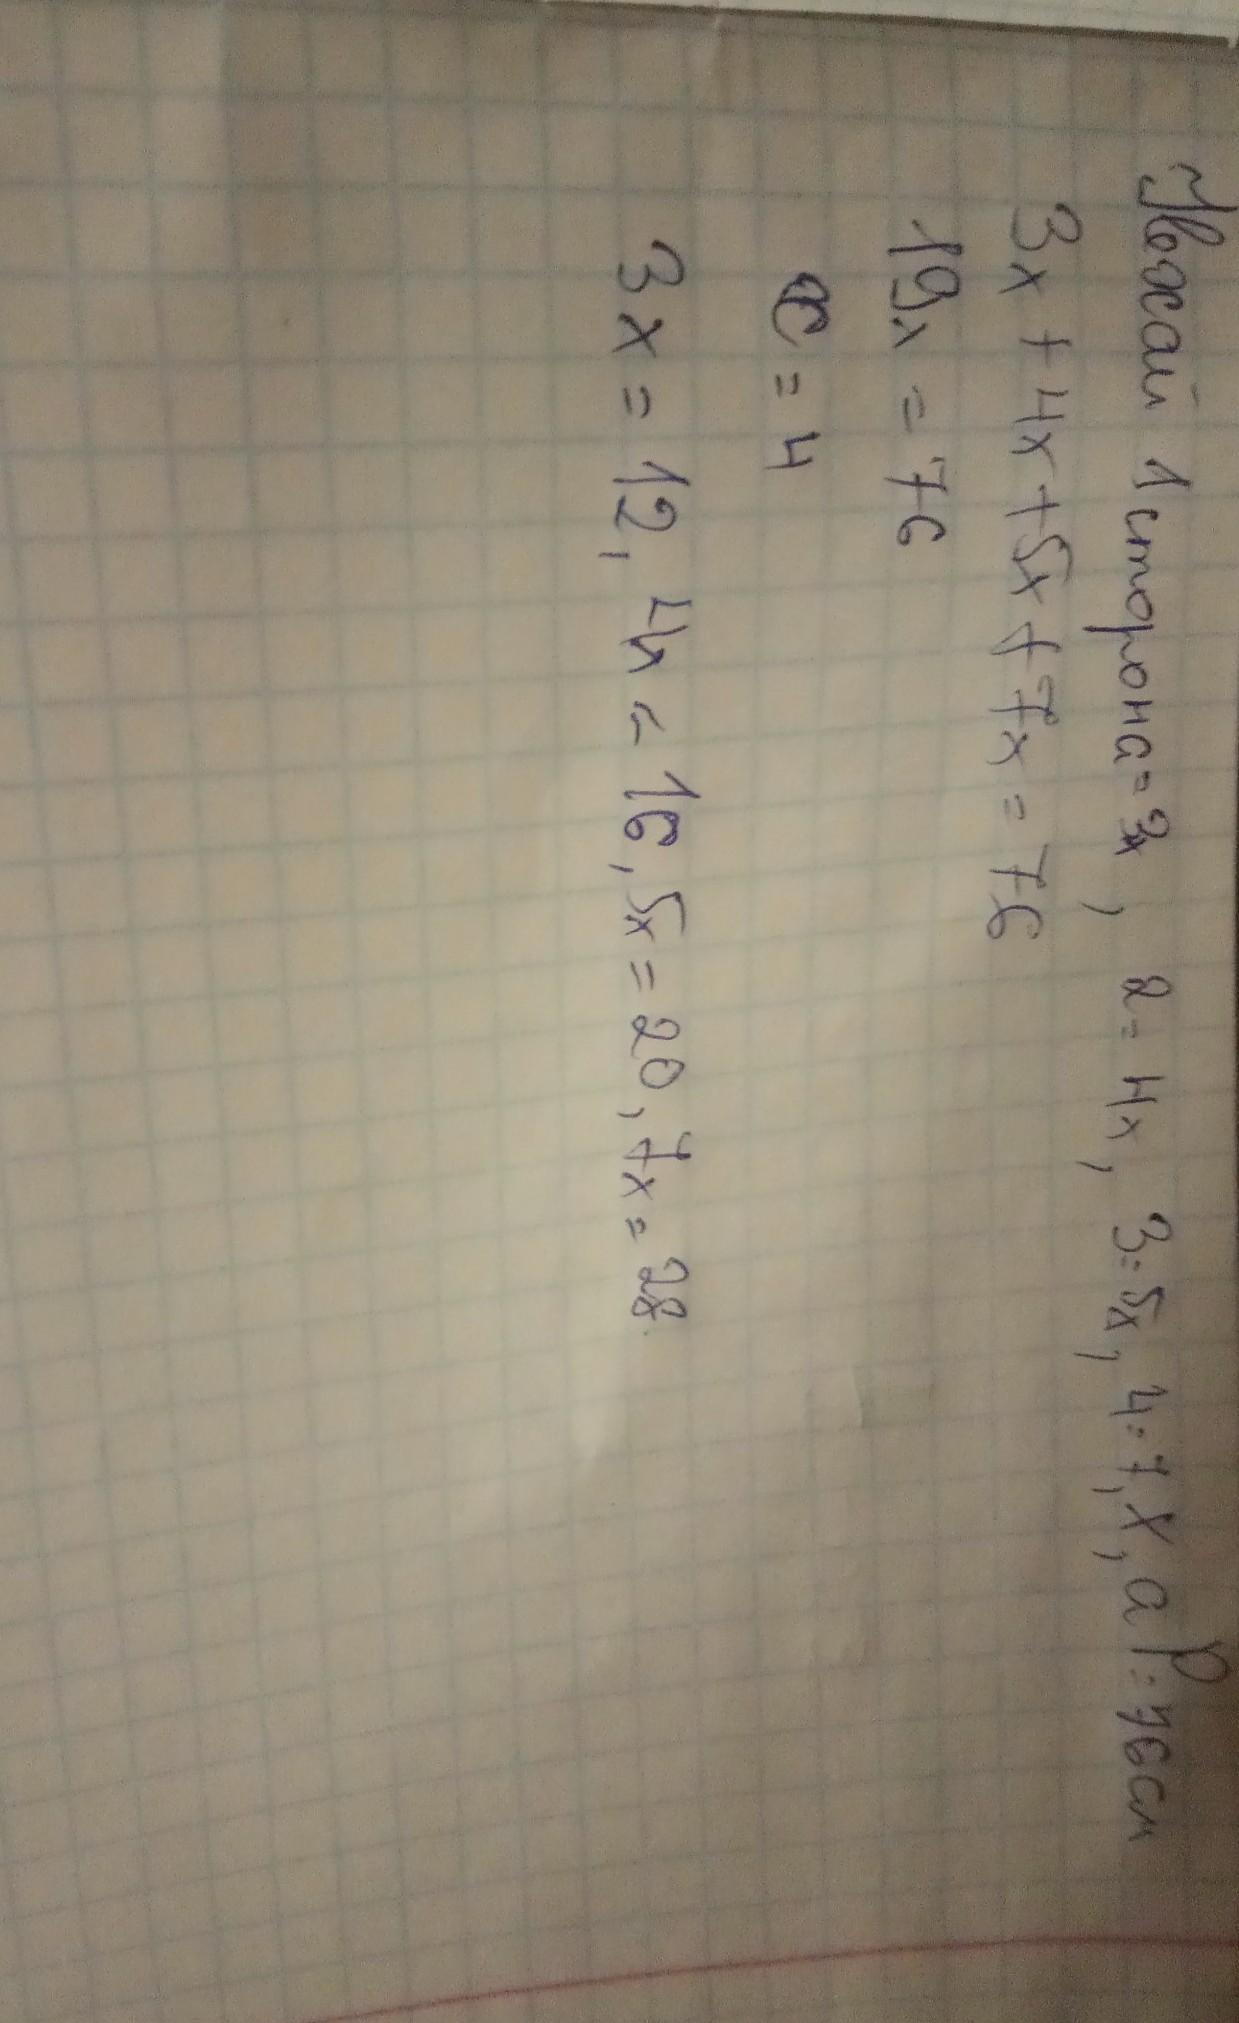 Нехай 1 сторона = 3x, 2 = 4x, 3 = 5x, 4 = 7, x, а P = 76см
3x + 4x + 5x + 7x = 76
19x = 76
x = 4
3x = 12, 4x = 16, 5x = 20, 7x = 28